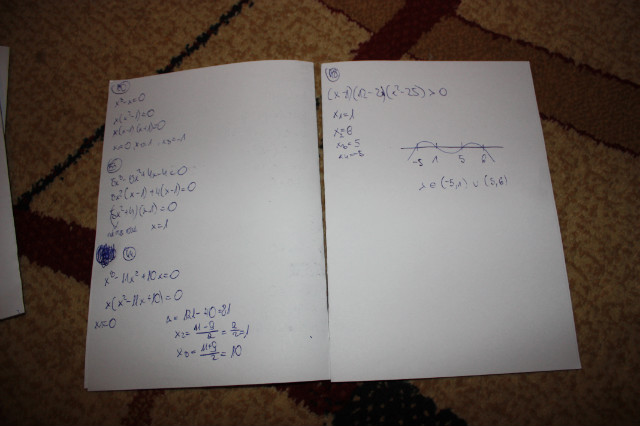 x³-x=0
x(x²-1)=0
x(x-1)(x+1)=0
x=0 x=1 x=-1
8x³-8x²+4x-4=0
8x²(x-1)+4(x-1)=0
(8x²+4)(x-1)=0
x=1
x³-11x²+10x=0
x(x²-11x+10)=0
x₁=0
Δ=121-40=81
x₂=11-9/2=2/2=1
x₃=11+9/2=10
(x-1)(12-2x)(x²-25)>0
x₁=1
x₂=6
x₃=5
x₄=-5
-5 1 5 6
x∈(-5,1)∪(5,6)